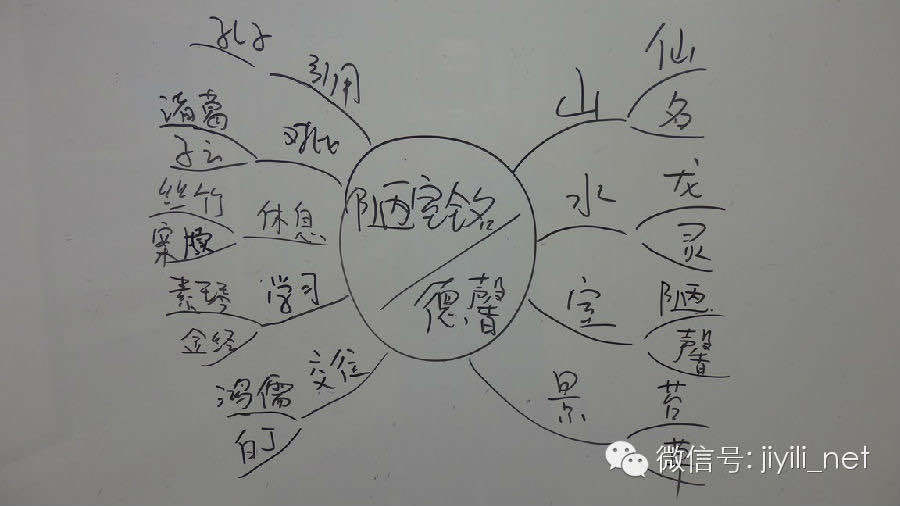 陋室铭
德馨
山
仙
名
水
龙
灵
室
陋
馨
景
苔
草
交往
鸿儒
白丁
学习
素琴
金经
休息
丝竹
案牍
对比
诸葛
子云
引用
孔子
微信号: jiyili_net